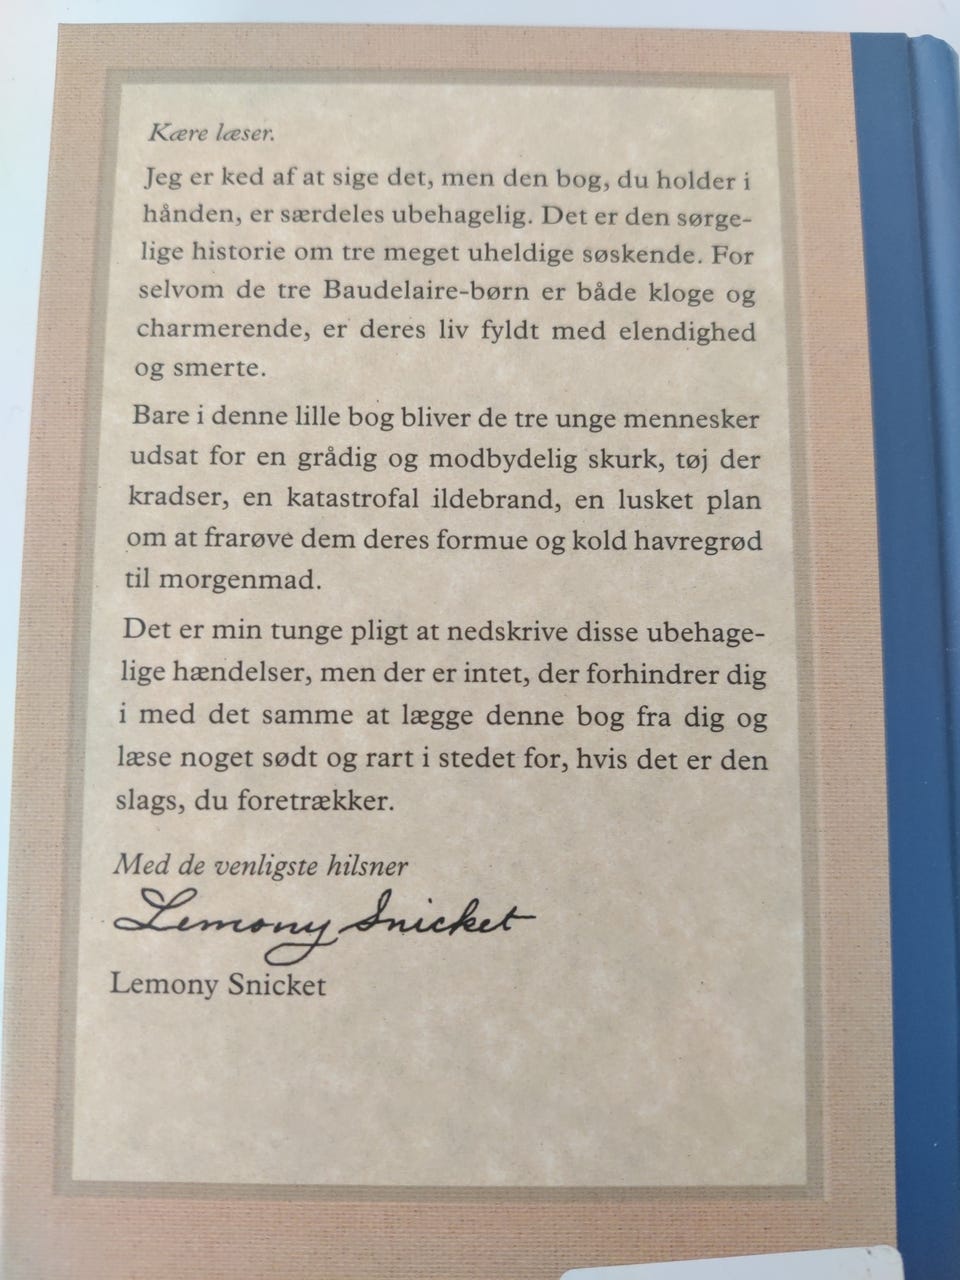 Kære læser.
Jeg er ked af at sige det, men den bog, du holder i
hånden, er særdeles ubehagelig. Det er den sørge-
lige historie om tre meget uheldige søskende. For
selvom de tre Baudelaire-børn er både kloge og
charmerende, er deres liv fyldt med elendighed
og smerte.
Bare i denne lille bog bliver de tre unge mennesker
udsat for en grådig og modbydelig skurk, tøj der
kradser, en katastrofal ildebrand, en lusket plan
om at frarøve dem deres formue og kold havregrød
til morgenmad.
Det er min tunge pligt at nedskrive disse ubehage-
lige hændelser, men der er intet, der forhindrer dig
i med det samme at lægge denne bog fra dig og
læse noget sødt og rart i stedet for, hvis det er den
slags, du foretrækker.
Med de venligste hilsner
Lemony Snicket
Lemony Snicket